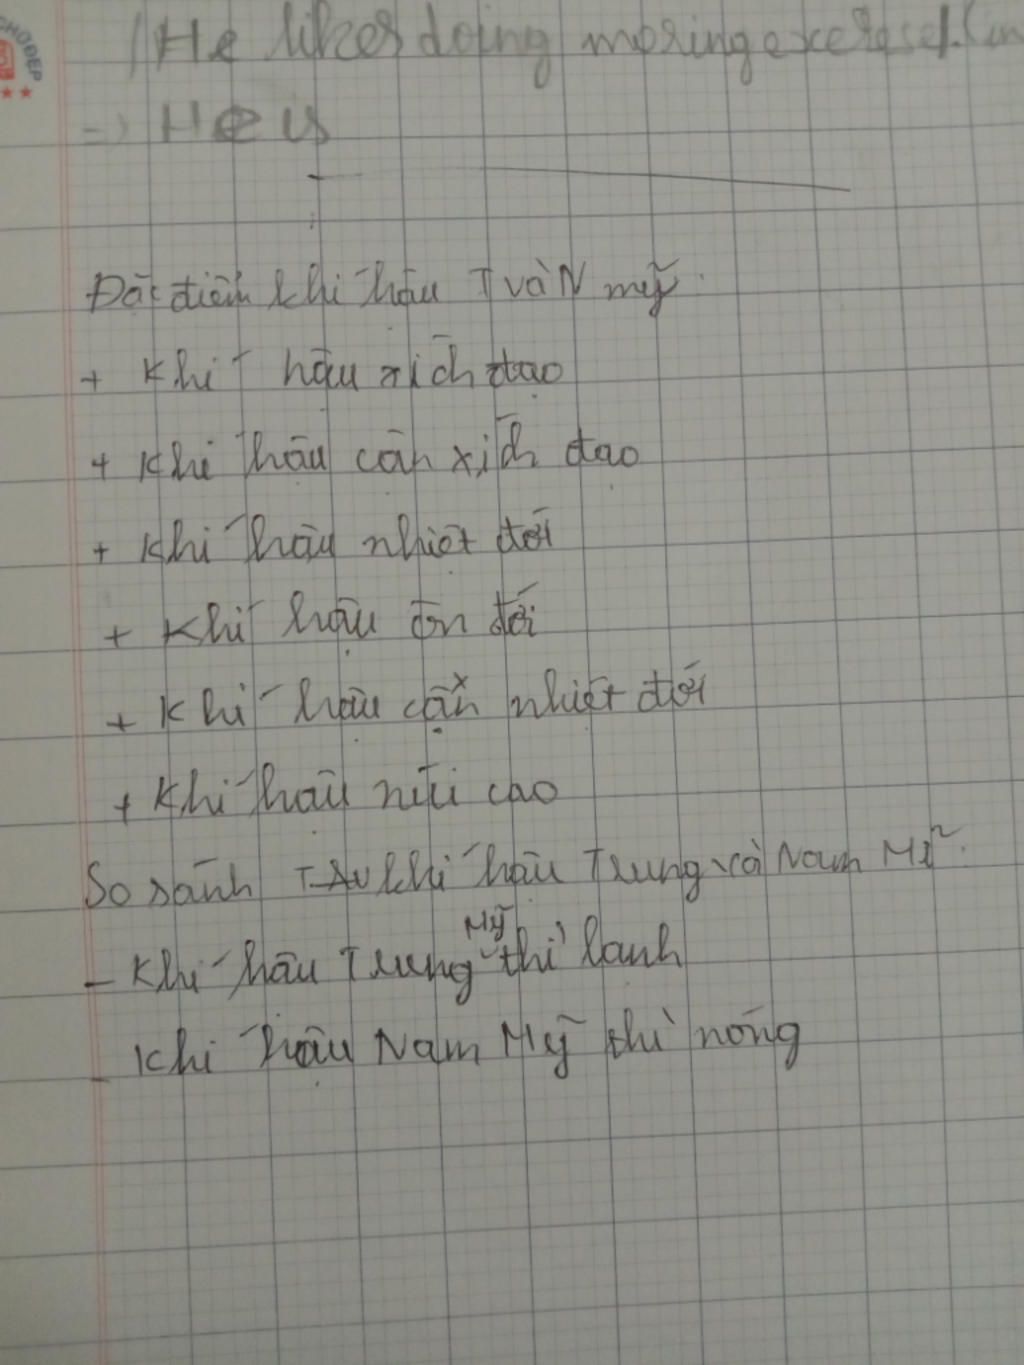 He likes doing moring exercise
=> He is
Đặc điểm khí hậu T và N mỹ.
+ Khí hậu xích đạo
+ Khí hậu cận xích đạo
+ Khí hậu nhiệt đới
+ Khí hậu ôn đới
+ Khí hậu cận nhiệt đới
+ Khí hậu núi cao
So sánh khí hậu Trung và Nam Mĩ.
- Khí hậu Trung Mỹ thì lạnh
- Khí hậu Nam Mỹ thì nóng